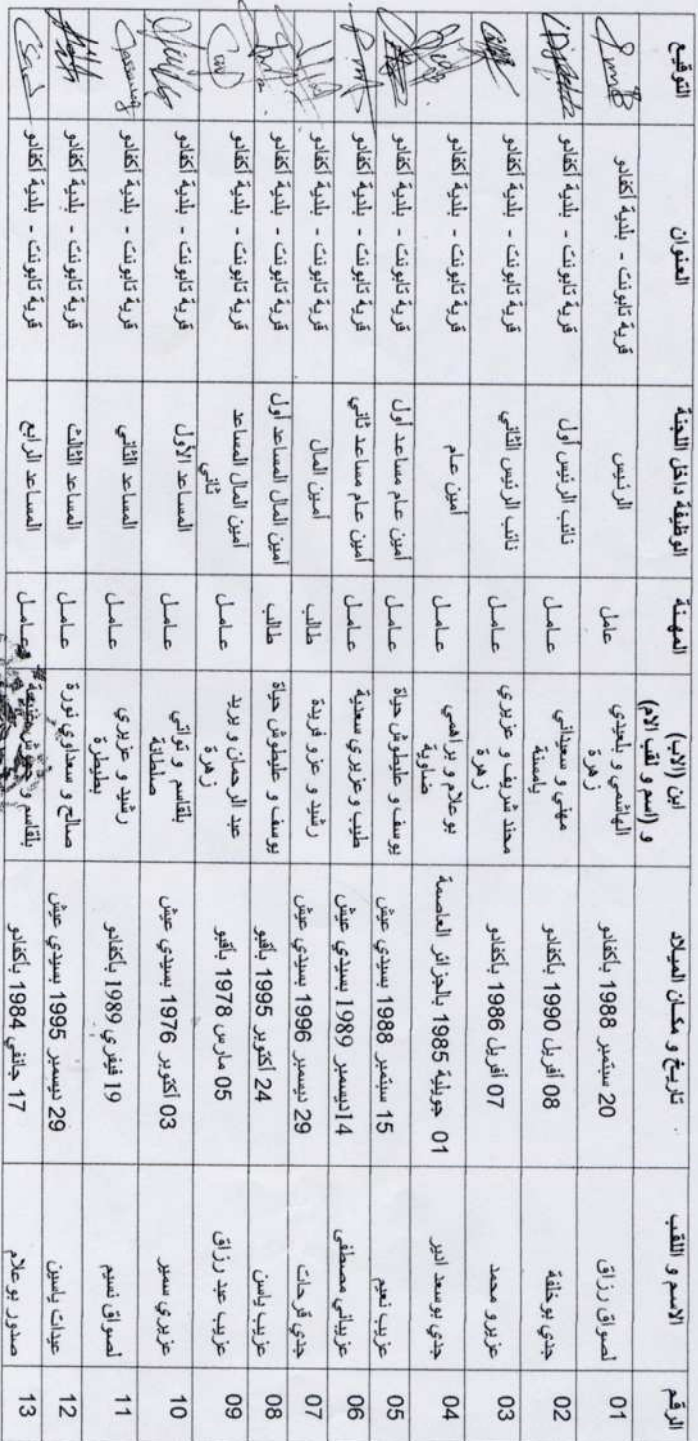 الرقم الاسم و اللقب تاريخ و مكان الميلاد ابن (الاب) و (اسم و لقب الام) المهنة الوظيفة داخل اللجنة العنوان التوقيع
01 لصواق رزاق 20 سبتمبر 1988 بأكفادو الهاشمي و بلعيدي زهرة عامل الرئيس قرية تابونت - بلدية أكفادو
02 جدي بوخلفة 08 أفريل 1990 بأكفادو مهني و سعيداني يامسنة عامل نائب الرئيس أول قرية تابونت - بلدية أكفادو
03 عزيرو محمد 07 أفريل 1986 بأكفادو محند شريف و عزيري زهرة عامل نائب الرئيس الثاني قرية تابونت - بلدية أكفادو
04 جدي بوسعد الير 01 جويلية 1985 بالجزائر العاصمة بوعلام و براهمي ضاوية عامل أمين عام قرية تابونت - بلدية أكفادو
05 عزيب نعيم 15 سبتمبر 1988 بسيدي عيش يوسف و عليطوش حياة عامل أمين عام مساعد أول قرية تابونت - بلدية أكفادو
06 عزيباني مصطفى 14ديسمبر 1989 بسيدي عيش طيب وعزيري سعدية عامل أمين عام مساعد ثاني قرية تابونت - بلدية أكفادو
07 جدي فرحات 29 ديسمبر 1996 بسيدي عيش رشيد و عزو فريدة طالب أمين المال قرية تابونت - بلدية أكفادو
08 عزيب ياسن 24 أكتوبر 1995 بأقبو يوسف و عليطوش حياة طالب أمين المال المساعد أول قرية تابونت - بلدية أكفادو
09 عزيب عبد رزاق 05 مارس 1978 بأقبو عبد الرحمان و يريد زهرة عامل أمين المال المساعد ثاني قرية تابونت - بلدية أكفادو
10 عزيري سمير 03 أكتوبر 1976 بسيدي عيش بلقاسم و تواتي صلطانة عامل المساعد الأول قرية تابونت - بلدية أكفادو
11 لصواق نسيم 19 فيفري 1989 بأكفادو رشيد و عزيري بطيطرة عامل المساعد الثاني قرية تابونت - بلدية أكفادو
12 عيدات ياسين 29 ديسمبر 1995 بسيدي عيش صالح و سعداوي نورة عامل المساعد الثالث قرية تابونت - بلدية أكفادو
13 صدور بوعلام 17 جانفي 1984 بأكفادو بلقاسم و عامل المساعد الرابع قرية تابونت - بلدية أكفادو